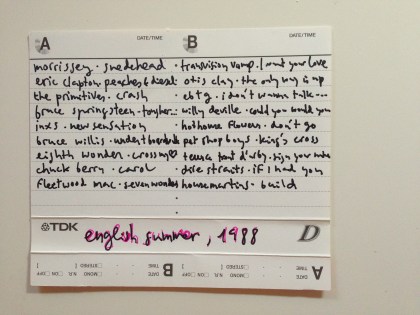 A DATE/TIME
B DATE/TIME
morrissey · suedehead
eric clapton peaches & diesel
the primitives · crash
bruce springsteen · tougher...
inxs · new sensation
bruce willis · under t boardwalk
eighth wonder · crossmy♡
chuck berry · carol
fleetwood mac · seven wonders
transvision vamp. I want your love
otis clay · the only way is up
ebtg · i don't wanna talk ---
willy deville · could you would you
hothouse flowers · don't go
pet shop boys · king's cross
terence trent d'arby · sign your name
dire straits · if i had you
housemartins · build
TDK english summer, 1988 D
A DATE N.R. □ON □OFF MONO □STEREO□
B DATE N.R. □ON □OFF MONO □STEREO□